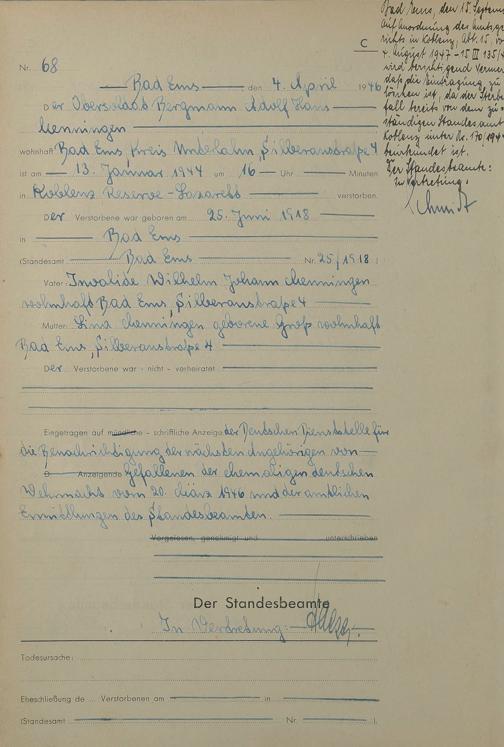 C
Nr. 68
Bad Ems den 4. April 1946
Der Obersoldat Bergmann Adolf Hans
Menningen
wohnhaft Bad Ems, Kreis Unterlahn, Silberaustraße 4
ist am 13. Januar 1944 um 16 Uhr Minuten
in Koblenz Reserve-Lazarett verstorben.
Der Verstorbene war geboren am 25. Juni 1918
in Bad Ems
(Standesamt Bad Ems Nr. 25/1918)
Vater: Invalide Wilhelm Johann Menningen
wohnhaft Bad Ems, Silberaustraße 4
Mutter: Lina Menningen geborene Groß wohnhaft
Bad Ems, Silberaustraße 4
Der Verstorbene war - nicht - verheiratet
Eingetragen auf mündliche - schriftliche Anzeige der Deutschen Dienststelle für
die Benachrichtigung der nächsten Angehörigen von
D Anzeigende Gefallenen der ehemaligen deutschen
Wehrmacht vom 20. März 1946 und der amtlichen
Ermittlungen des Standesbeamten.
Vorgelesen, genehmigt und unterschrieben
Der Standesbeamte
In Vertretung
Todesursache:
Eheschließung de Verstorbenen am in
(Standesamt Nr. ).
Bad Ems, den 15. Septem
Auf Anordnung des Amtsge
richts in Koblenz, Abt. 15, v
4. August 1947 - 15 III 135/4
wird berichtigend vermer
daß die Eintragung zu
löschen ist, da der Sterbe
fall bereits von dem zu-
ständigen Standesamt
Koblenz unter Nr. 170/194
beurkundet ist.
Der Standesbeamte:
In Vertretung:
Schmidt